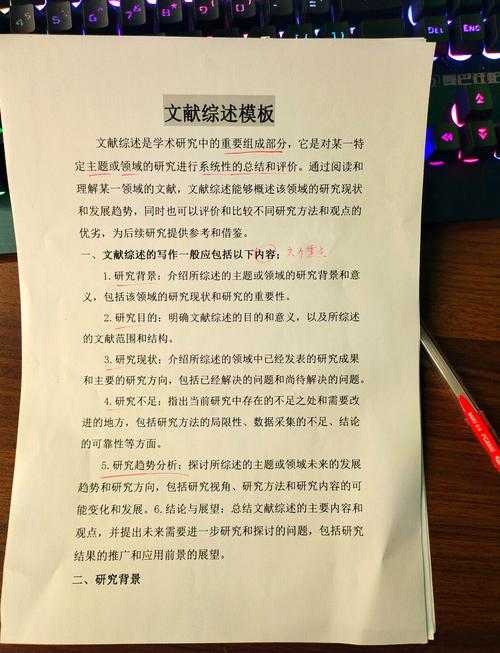 文献综述模板
文献综述是学术研究中的重要组成部分，它是对某一特
定主题或领域的研究进行系统性的总结和评价。通过阅读和
理解某一领域的文献，文献综述能够概述该领域的研究现状
和发展趋势，同时也可以评价和比较不同研究方法和观点的
优劣，为后续研究提供参考和借鉴。
一、文献综述的写作一般应包括以下内容：
1.研究背景：介绍所综述的主题或领域的研究背景和意
义，包括该领域的研究现状和研究的重要性。
2.研究目的：明确文献综述的目的和意义，以及所综述
的文献范围和结构。
3.研究现状：介绍所综述的领域中已经发表的研究成果
和主要的研究方向，包括已经解决的问题和尚待解决的问题。
4.研究不足：指出当前研究中存在的不足之处和需要改
进的地方，包括研究方法的局限性、数据采集的不足、结论
的可靠性等方面。
5.研究趋势分析：探讨所综述的主题或领域未来的发展
趋势和研究方向，包括研究视角、研究方法和研究内容的可
能变化和发展。6.结论与展望：总结文献综述的主要内容和
观点，并提出未来需要进一步研究和探讨的问题，包括研究
结果的推广和应用前景的展望。
二、研究背景
DEL
END